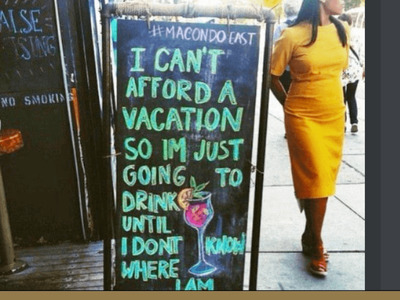 ALSE
ISING
NO SMOKING
#MACONDO EAST
I CAN'T
AFFORD A
VACATION
SO IM JUST
GOING TO
DRINK
UNTIL
I DONT KNOW
WHERE
I AM